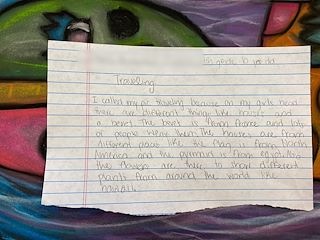 Traveling
I called my pic traveling because on my girls head
there are different things like houses and
a beret. The beret is from france and lots
of people wear them. The houses are from
different places like the flag is from North
America and the pyramid is from egypt. also
the flowers are there to show different
plants from around the world like